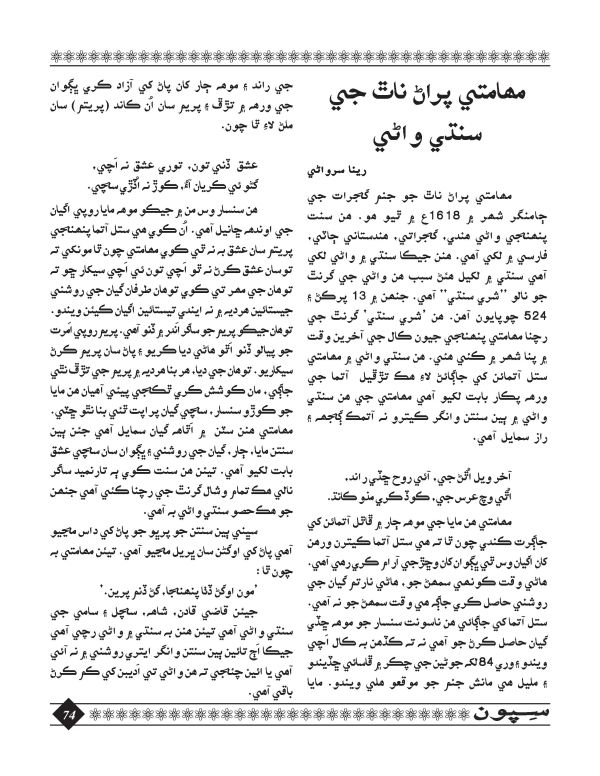 مهامتي پراڻ ناٿ جي
سنڌي واڻي
رينا سرواڻي
مهامتي پراڻ ناٿ جو جنم گجرات جي
ڄامنگر شهر ۾ 1618ع ۾ ٿيو هو. هن سنت
پنهنجي واڻي هندي، گجراتي، هندستاني ڄاٽي،
فارسي ۾ لکي آهي. هنن جيڪا سنڌي ۾ واڻي لکي
آهي سنڌي ۾ لکيل هئڻ سبب هن واڻي جي گرنٿ
جو نالو ”شري سنڌي“ آهي. جنهن ۾ 13 پرڪڻ ۽
524 چوپايون آهن. هن ’شري سنڌي‘ گرنٿ جي
رچنا مهامتي پنهنجي جيون ڪال جي آخرين وقت
۾ پنا شهر ۾ ڪئي هئي. هن سنڌي واڻي ۾ مهامتي
ستل آتمائن کي جاڳائڻ لاءِ هڪ تڙقيل آتما جي
ورهه پڪار بابت لکيو آهي مهامتي جي هن سنڌي
واڻي ۾ ٻين سنتن وانگر ڪيترو ئه آتمڪ ڳاڃهه ۽
راز سمايل آهي.
آخر ويل اُٿڻ جي، آئي روح ڇٽي راند،
اُٿي وچ عرس جي، ڪوڏ ڪري منو کاند.
مهامتي هن مايا جي موهه ڄار ۾ قاٿل آتمائن کي
جاڳرت ڪندي چون ٿا ته هي ستل آتما ڪيترن ورهن
کان اڳيان وس ٿي ڀڳوان کان وڇڙجي آرام ڪري رهي آهي.
هاڻي وقت ڪونهي سمهڻ جو، هاڻي نارتم گيان جي
روشني حاصل ڪري جاڳه هي وقت سمهڻ جو نه آهي.
ستل آتما کي جاڳائي هن ناسونت سنسار جو موهه ڇڏي
گيان حاصل ڪرڻ جو آهي نه ته ڪڏهن به ڪال اَچي
ويندو ۽ وري 84 لکه جوڻين جي چڪر ۾ قاسائي ڇڏيندو
۽ مليل هي مانش جنم جو موقعو هلي ويندو. مايا
جي راند ۽ موهه ڄار کان پاڻ کي آزاد ڪري ڀڳوان
جي ورهه ۾ تڙڦ ۽ پريم سان اُن کاند (پريتم) سان
ملڻ لاءِ ٿا چون.
عشق ڏئي تون، توري عشق نه اَچي،
گئو ئي ڪريان آءُ، ڪوڙ نه اُڪڙي سچي.
هن سنسار وس هن ۾ جيڪو موهه مايا روپي اگيان
جي اونداهه ڇانيل آهي. اُن کي هي ستل آتما پنهنجي
پريتم سان عشق به نه ٿي ڪوي مهامتي چون ٿا مونکي ته
توسان عشق ڪرڻ نه ٿو اَچي تون ئي اَچي سيکار ڇو ته
توهان جي مهر ٿي ڪوي توهان طرفان گيان جي روشني
جيستائين هرديه ۾ نه ايندي تيستائين اگيان ڪيئن ويندو.
توهان جيڪو پريم جو ساگر اندر ۾ ڏنو آهي. پريم روپي اَمرت
جو پيالو ڏنو اٿو هاڻي ديا ڪريو ۽ پاڻ سان پريم ڪرڻ
سيکاريو. توهان جي ديا، مهر بنا هرديه ۾ پريم جي تڙڦ نٿي
جاڳي، مان ڪوشش ڪري ٿڪجي پيئي آهيان هن مايا
جو ڪوڙو سنسار، سچي گيان پراپت ٿئي بنا نٿو ڇٽي.
مهامتي هنن سٽن ۾ اٿاهه گيان سمايل آهي جئن ٻين
سنتن مايا، ڄار، گيان جي روشني ۽ ڀڳوان سان سچي عشق
بابت لکيو آهي. تيئن هن سنت ڪوي به تارنميد ساگر
نالي هڪ تمام وشال گرنٿ جي رچنا ڪئي آهي جنهن
جو هڪ حصو سنڌي واڻي به آهي.
سڀني ٻين سنتن جو پرڀو جو پاڻ کي داس مڃيو
آهي پاڻ کي اوگڻن سان ڀريل مڃيو آهي. تيئن مهامتي به
چون ٿا:
’مون اوگڻ ڏٺا پنهنجا، گڻ ڏنم پرين.‘
جيئن قاضي قادن، شاهه، سچل ۽ سامي جي
سنڌي واڻي آهي تيئن هنن به سنڌي ۾ واڻي رچي آهي
جيڪا اڄ تائين ٻين سنتن وانگر ايتري روشني ۾ نه آئي
آهي يا ائين چئجي ته هن واڻي تي اَديبن کي ڪم ڪرڻ
باقي آهي.
74
سِپون